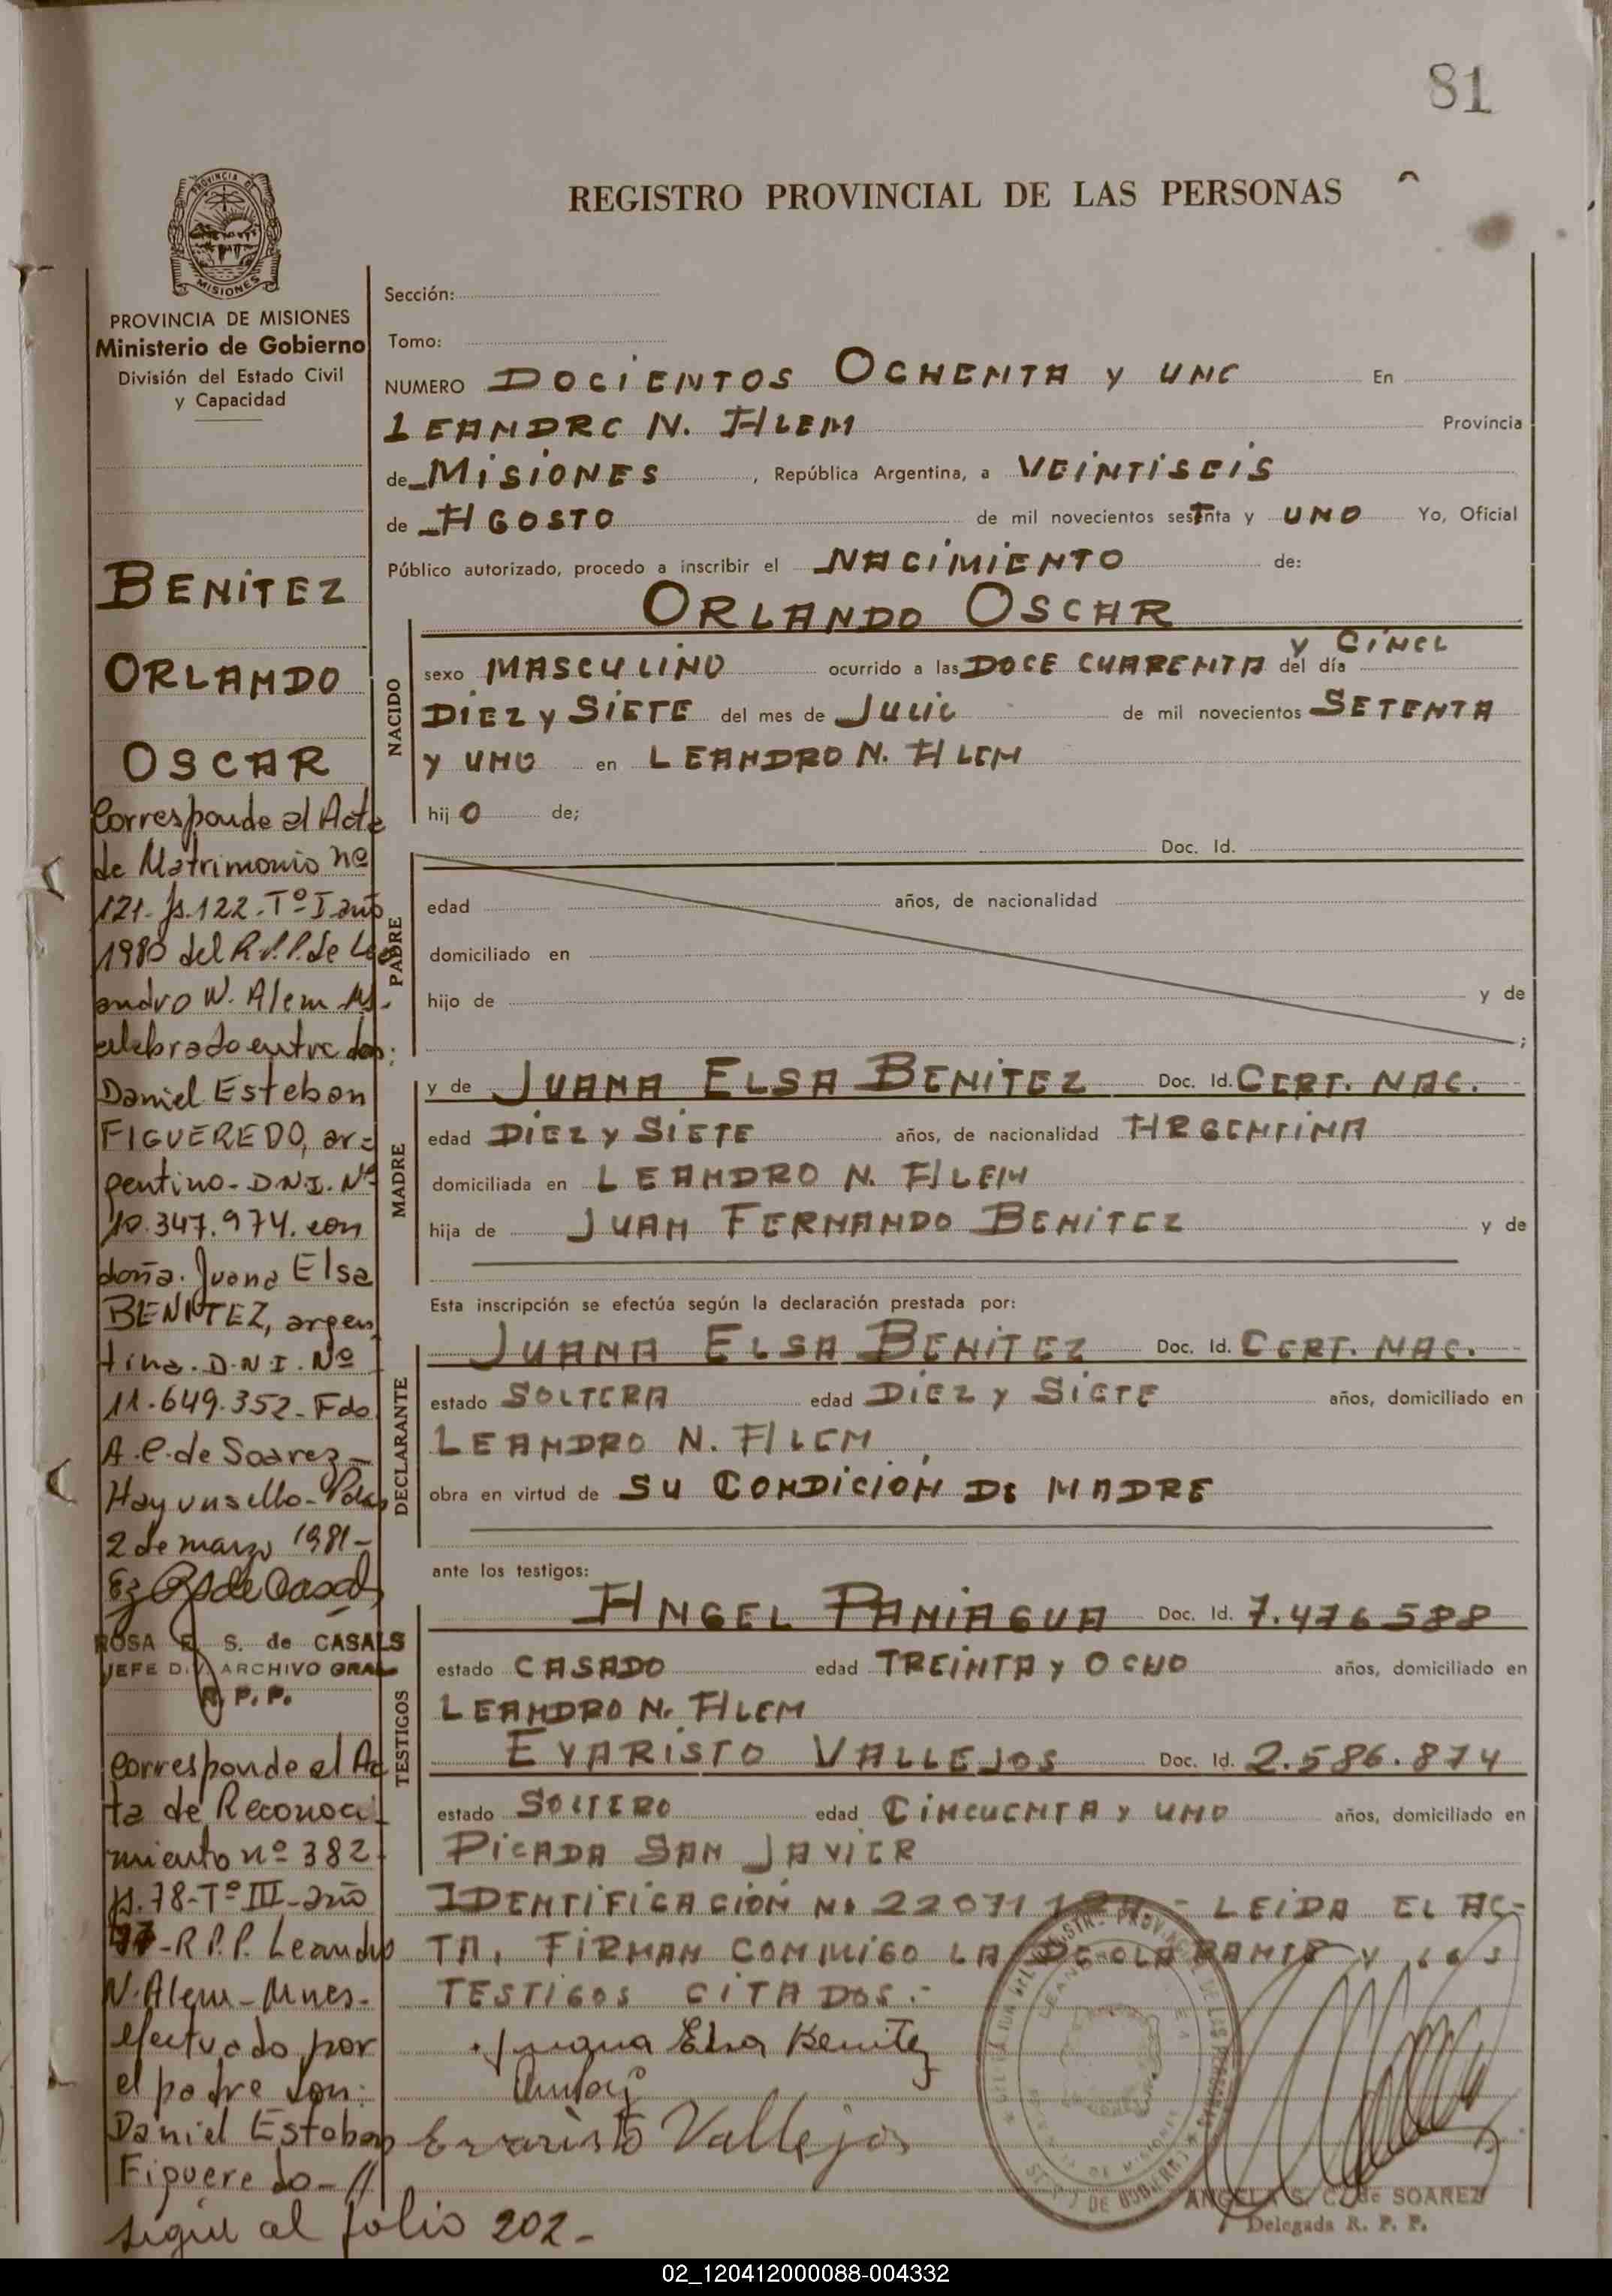 81
REGISTRO PROVINCIAL DE LAS PERSONAS
PROVINCIA DE MISIONES
Ministerio de Gobierno
División del Estado Civil
y Capacidad
BENITEZ
ORLANDO
OSCAR
Corresponde al Acta
de Matrimonio nº
121-fs.122-Tº I año
1980 del R.P.P. de Le
andro N. Alem Ms.-
celebrado entre don:
Daniel Esteban
FIGUEREDO, ar-
gentino-D.N.I. Nº
10.347.974. con
doña. Juana Elsa
BENITEZ, argen
tina. D.N.I. Nº
11.649.352- Fdo
A.C. de Soarez-
Hay un sello- Pdas
2 de marzo 1981-
ROSA E. S. de CASALS
JEFE DIV. ARCHIVO GRAL
R. P. P.
Corresponde al Ac
ta de Reconoci-
miento nº 382-
fs.78-Tº III-año
-R.P.P. Leandro
N. Alem-Mnes-
efectuado por
el padre don:
Daniel Esteban
Figueredo-//
sigue al folio 202-
Sección:
Tomo:
NUMERO DOCIENTOS OCHENTA Y UNO En
LEANDRO N. ALEM Provincia
de MISIONES, República Argentina, a VEINTISEIS
de AGOSTO de mil novecientos setenta y UNO Yo, Oficial
Público autorizado, procedo a inscribir el NACIMIENTO de:
ORLANDO OSCAR
NACIDO
sexo MASCULINO ocurrido a las DOCE CUARENTA Y CINCO del día
DIEZ Y SIETE del mes de JULIO de mil novecientos SETENTA
Y UNO en LEANDRO N. ALEM
hijO de;
PADRE
Doc. Id.
edad años, de nacionalidad
domiciliado en
hijo de y de
;
MADRE
y de JUANA ELSA BENITEZ Doc. Id. CERT. NAC.
edad DIEZ Y SIETE años, de nacionalidad ARGENTINA
domiciliada en LEANDRO N. ALEM
hija de JUAN FERNANDO BENITEZ y de
Esta inscripción se efectúa según la declaración prestada por:
DECLARANTE
JUANA ELSA BENITEZ Doc. Id. CERT. NAC.
estado SOLTERA edad DIEZ Y SIETE años, domiciliado en
LEANDRO N. ALEM
obra en virtud de SU CONDICIÓN DE MADRE
ante los testigos:
TESTIGOS
ANGEL PANIAGUA Doc. Id. 7.476588
estado CASADO edad TREINTA Y OCHO años, domiciliado en
LEANDRO N. ALEM
EVARISTO VALLEJOS Doc. Id. 2.586.874
estado SOLTERO edad CINCUENTA Y UNO años, domiciliado en
PICADA SAN JAVIER
IDENTIFICACIÓN Nº LEIDA EL AC-
TA, FIRMAN CONMIGO LA DECLARANTE Y LOS
TESTIGOS CITADOS.-
Juana Elsa Benitez
Evaristo Vallejos
ANGELA S. C. de SOAREZ
Delegada R. P. P.
02_120412000088-004332